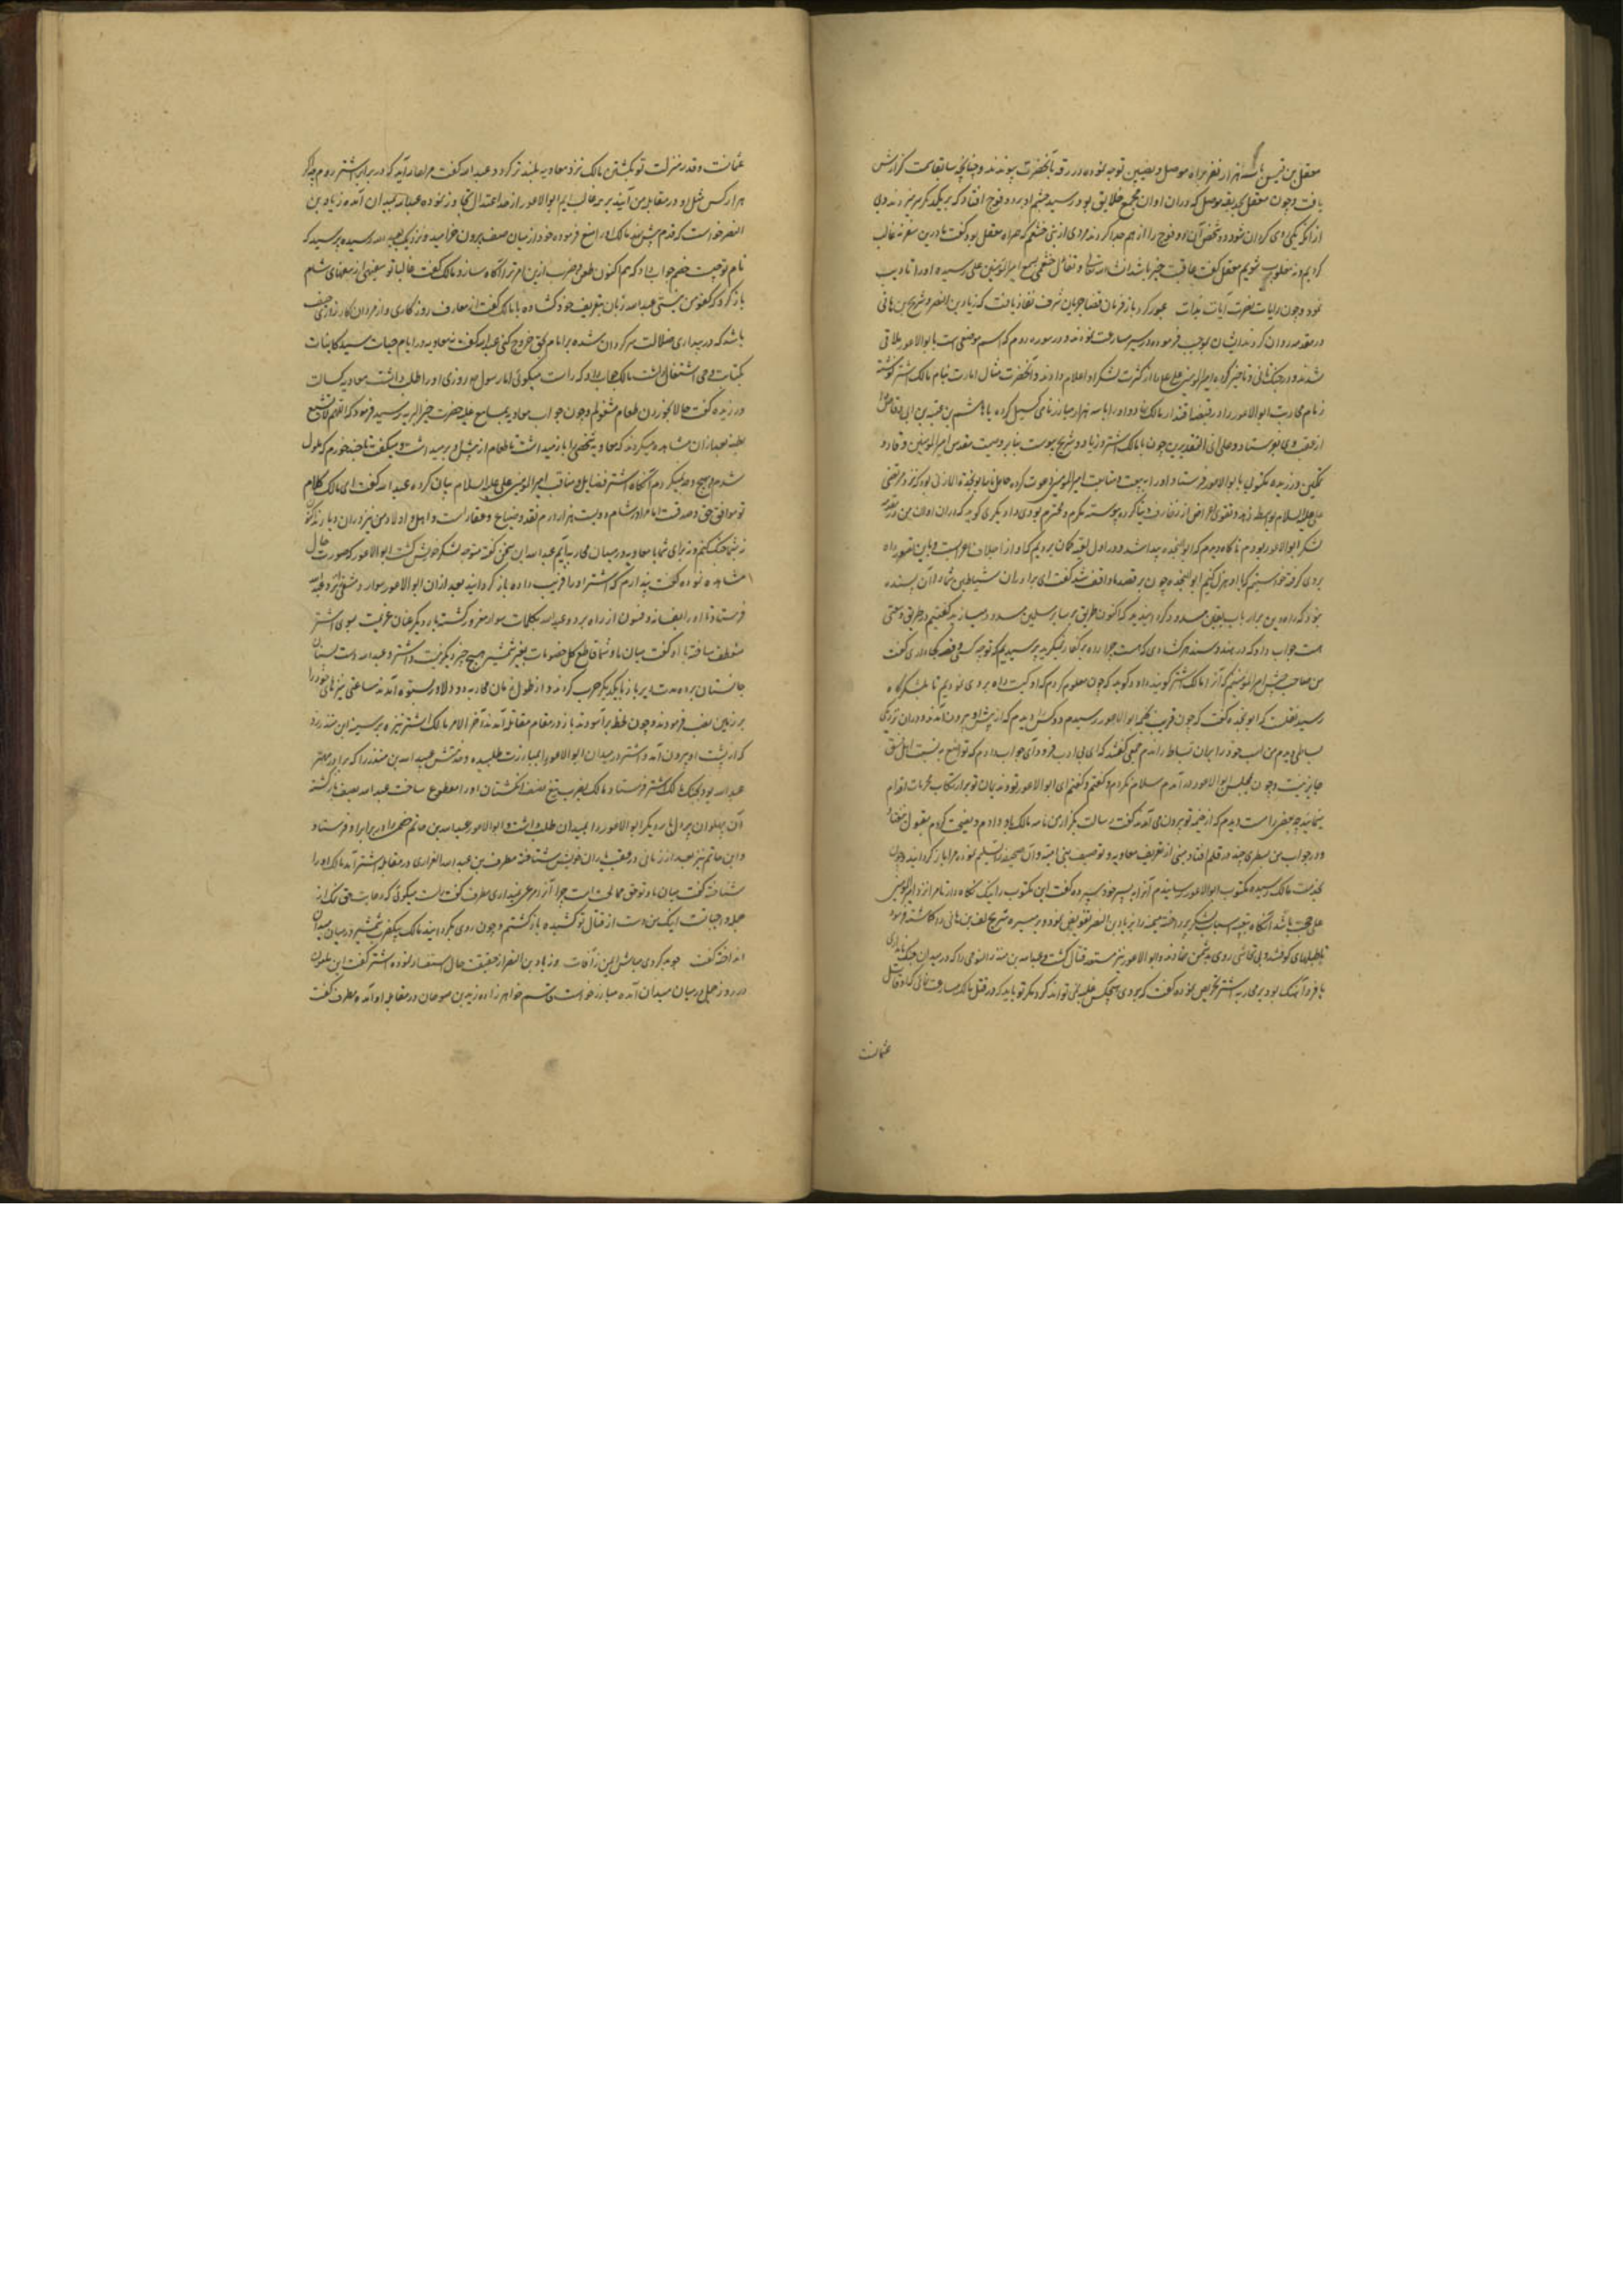 معقل بن قیس با سه هزار نفر براه موصل و نصیبین توجه نموده در رقه بآنحضرت پیوندند و چنانچه سابقا سمت گزارش
یافت و چون معقل بحدیقه موصل که دران اوان مجمع خلایق بود رسید چشم او بر دو قوچ افتاد که بر یکدیگر سر میزدند و بی
ازانکه یکی روی گردان شود دو شخص آن دو قوچ را از هم جدا کردند مردی از بنی خثعم که همراه معقل بود گفت ما درین سفر نه غالب
گردیم و نه مغلوب شویم معقل گفت عاقبت خیر باشد انشاء الله تعالی و تفأل خثعمی بسمع امیرالمؤمنین علی رسیده او را تادیب
نمود و چون رایات نصرت آیات بذات عبور کرد باز فرمان قضا جریان شرف نفاذ یافت که زیاد بن النضر و شریح بن هانی
در مقدمه روان گردند ایشان بموجب فرموده در سیر مسارعت نمودند و در سور روم که اسم موضعی است با ابوالاعور ملاقی
شدند و در جنک تانی و تاخیر کرده امیرالمؤمنین علی علیه را از کثرت لشکر او اعلام دادند و آنحضرت مثال امارت بنام مالک اشتر نوشته
زمام محاربت ابوالاعور را در قبضه اقتدار مالک نهاد و او را با سه هزار مبارز نامی کسیل کرده با هاشم بن عتبه بن ابی وقاص
از عقب وی بفرستاد و علی ای التقدیرین چون با مالک اشتر و زیاد و شریح پیوست بنا بر وصیت مقدس امیرالمؤمنین وقار و
تمکین ورزیده مکتوبی با ابوالاعور فرستاد و او را به بیعت و متابعت امیرالمؤمنین دعوت کرده حامل نامه ابو نجده
علی علیه السلام بواسطه زهد و تقوی و اعراض از زخارف دنیا کرده پیوسته مکرم و محترم بودی و او دیگری گوید که دران اوان من در مقدمه
لشکر ابوالاعور بودم ناگاه دیدم که ابو نجده پیدا شد و در اول
بروی گرفته خواستیم که با او هزل کنیم ابو نجده چون بر قصد ما واقف شد گفت ای برادران شیاطین شما را آن بسنده
نبود که راه دین بر ارباب یقین مسدود کرده اینید که اکنون طریق بر سایر مسلمین مسدود میسازید گفتیم در طریق وسعتی
هست جواب داد که در هند و سند هر گشادی که هست چرا رده بر کفار نمیگیرید پرسیدیم که توجه کسی و قصد کجا داری گفت
من صاحب جیش امیرالمؤمنینم که آنرا مالک اشتر گویند راوی گوید که چون معلوم کردم که او کیست راه بروی نمودیم تا بلشکرگاه
رسید نقلست که ابو نجده گفت که چون قریب بخیمه ابوالاعور رسیدم دو کس را دیدم که از پیش او بیرون آمدند و دران نزدیکی
بساطی دیدم من اسب خود را بمیان بساط راندم جمعی گفتند که ای بی ادب فرود آی جواب دادم که تواضع به نسبت اهل فسق
جایز نیست و چون بمجلس ابوالاعور در آمدم سلام نکردم و گفتم ای ابوالاعور تو و ندیمان تو بر ارتکاب محرمات اقدام
مینمایید چه بعضی را مست دیدم که از خیمه تو بیرون می آمدند گفت رسالت بگزاری نامه مالک باو دادم و نصیحت کردم مقبول نیفتاد
و در جواب من سطری چند در قلم افتاد مبنی از تعریف معاویه و توصیف بنی امیه و آن صحیفه را تسلیم نموده مرا باز گردانید و چون
بخدمت مالک رسیده مکتوب ابوالاعور رسانیدم آنرا به پسر خود سپرده گفت این مکتوب را نیک نگاه دار تا مرا نزد امیرالمؤمنین
علی حجت باشد آنگاه بتعبیه اسباب لشکر پرداخته میمنه را بزیاد بن النضر تفویض نمود و میسره بشریح بن هانی
تا طبلهای کوفتند و بی تحاشی روی بدشمن نهادند و ابوالاعور نیز مستعد قتال گشت و عبدالله بن منذر التنوخی را که در میدان جنک
با قرو آهنگ بود بر محاربه اشتر تحریص نموده گفت که بروی هیچکس غلبه نمی تواند کرد مگر تو باید که در قتل مالک مسارعت نمائی که او قاتل
عثمانست
عثمانست و قدر و منزلت تو بکشتن مالک نزد معاویه بلندتر گردد عبدالله گفت مرا عار آید که در برابر اشتر روم چه اگر
هزار کس مثل او در مقابله من آیند بر همه غالب ایم ابوالاعور از حد اعتدال تجاوز نموده عبدالله بمیدان آمده زیاد بن
النضر خواست که قدم پیش نهد مالک او را منع فرموده خود از میان صف بیرون خرامید و نزدیک بعبدالله رسیده پرسید که
نام تو چیست خصم جواب داد که هم اکنون طعن و ضرب ازین امر ترا آگاه سازد مالک گفت غالبا تو سفیهی از سفهای شام
باز گرد که کفو من نیستی عبدالله زبان بتعریف خود گشاده با مالک گفت از معارف روزگاری و از مردان کارزار حیف
باشد که در بیدای ضلالت سرگردان شده بر امام بحق خروج کنی عبدالله گفت نه معاویه در ایام حیات سید کاینات
بکتابت وحی اشتغال داشت مالک جواب داد که راست میگوئی اما رسول م روزی او را طلب داشت معاویه کسالت
ورزیده گفت حالا بخوردن طعام مشغولم و چون جواب معاویه بسامع علیه حضرت خیر البریه رسید فرمود که اللهم لا تشبع
بطنه بعد ازان مشاهده میکردند که معاویه شخصی را باز میداشت تا طعام از پیش او بر میداشت و میگفت تا چند خورم که ملول
شدم و هیچ وجه سیر نمیگردم آنگاه اشتر فضایل و مناقب امیرالمؤمنین علی علیه السلام بیان کرده عبدالله گفت ای مالک کلام
تو موافق حق و صدقست اما مرا در شام دویست هزار درم نقد و ضیاع و عقارست و اهل و اولاد من نیز دران دیار ند اکنون
نه بشما جنگ کنم و نه برای شما با معاویه در میدان محاربه آیم عبدالله این سخن گفته متوجه لشکر خویش گشت ابوالاعور که صورت حال
مشاهده نموده گفت پندارم که اشتر او را فریب داده باز گردانید بعد ازان ابوالاعور سوار دمشقی نزد عبدالله
فرستاد تا او را بافسانه و فسون از راه برد و عبدالله بکلمات سوار مغرور گشته بار دیگر عنان عزیمت بسوی اشتر
منعطف ساخته با او گفت میان ما و شما قاطع کل خصومات بغیر شمشیر هیچ چیز دیگر نیست و اشتر و عبدالله دست بسنان
جانستان برده مدت دیر باز با یکدیگر حرب کردند و از طول زمان محاربه هر دو دلاور بستوه آمدند ساعتی نیزهای خود را
بر زمین نصب فرمودند و چون لحظه برآسودند باز در مقام مقاتله آمدند آخر الامر مالک اشتر نیزه بر سینه ابن منذر زد
که از پشت او بیرون آمد و اشتر در میدان ابوالاعور را بمبارزت طلبیده و عمش عبدالله بن منذر را که برادر مهتر
عبدالله بود بجنگ مالک اشتر فرستاد مالک بضرب تیغ نصف انگشتان او را مقطوع ساخت عبدالله بصف بازگشته
آن پهلوان پردل بار دیگر ابوالاعور را بمیدان طلب داشت و ابوالاعور عبدالله بن حاتم را در برابر او فرستاد
و ابن حاتم نیز بعد از زمانی در عقب یاران خویش شتافته مطرف بن عبدالله الفزاری در مقابله اشتر آمد مالک او را
شناخته گفت میان ما و تو حق ممالحت است چرا آزرم مرعی نمیداری مطرف گفت راست میگوئی که رعایت حق نمک از
جمله واجبات است اینک من دست از قتال تو کشیده باز گشتم و چون روی بگردانید مالک بیکضرب شمشیر در میان میدان
انداخته گفت زیاد بن النضر از حقیقت حال استفسار نموده اشتر گفت این ملعون
در روز جمل در میان میدان آمده مبارز خواست قسم خواهرزاده زید بن صوحان در مقابله او آمده مطرف گفت